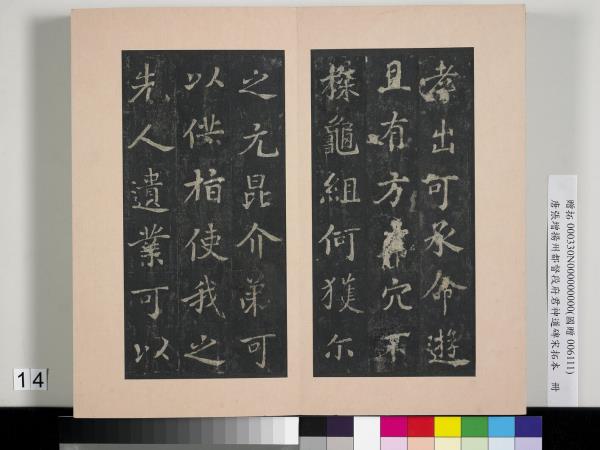 出可承命遊
且有方穴不
龜組何獲尔
之元昆介弟可
以供指使我之
先人遺業可以
贈拓 000330N000000000(國贈 006111)
唐張增揚州都督段府君神道碑宋拓本 冊
14